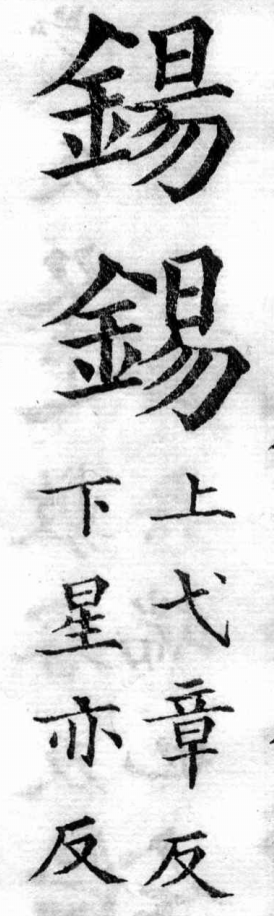 鍚錫
上弋章反
下星亦反